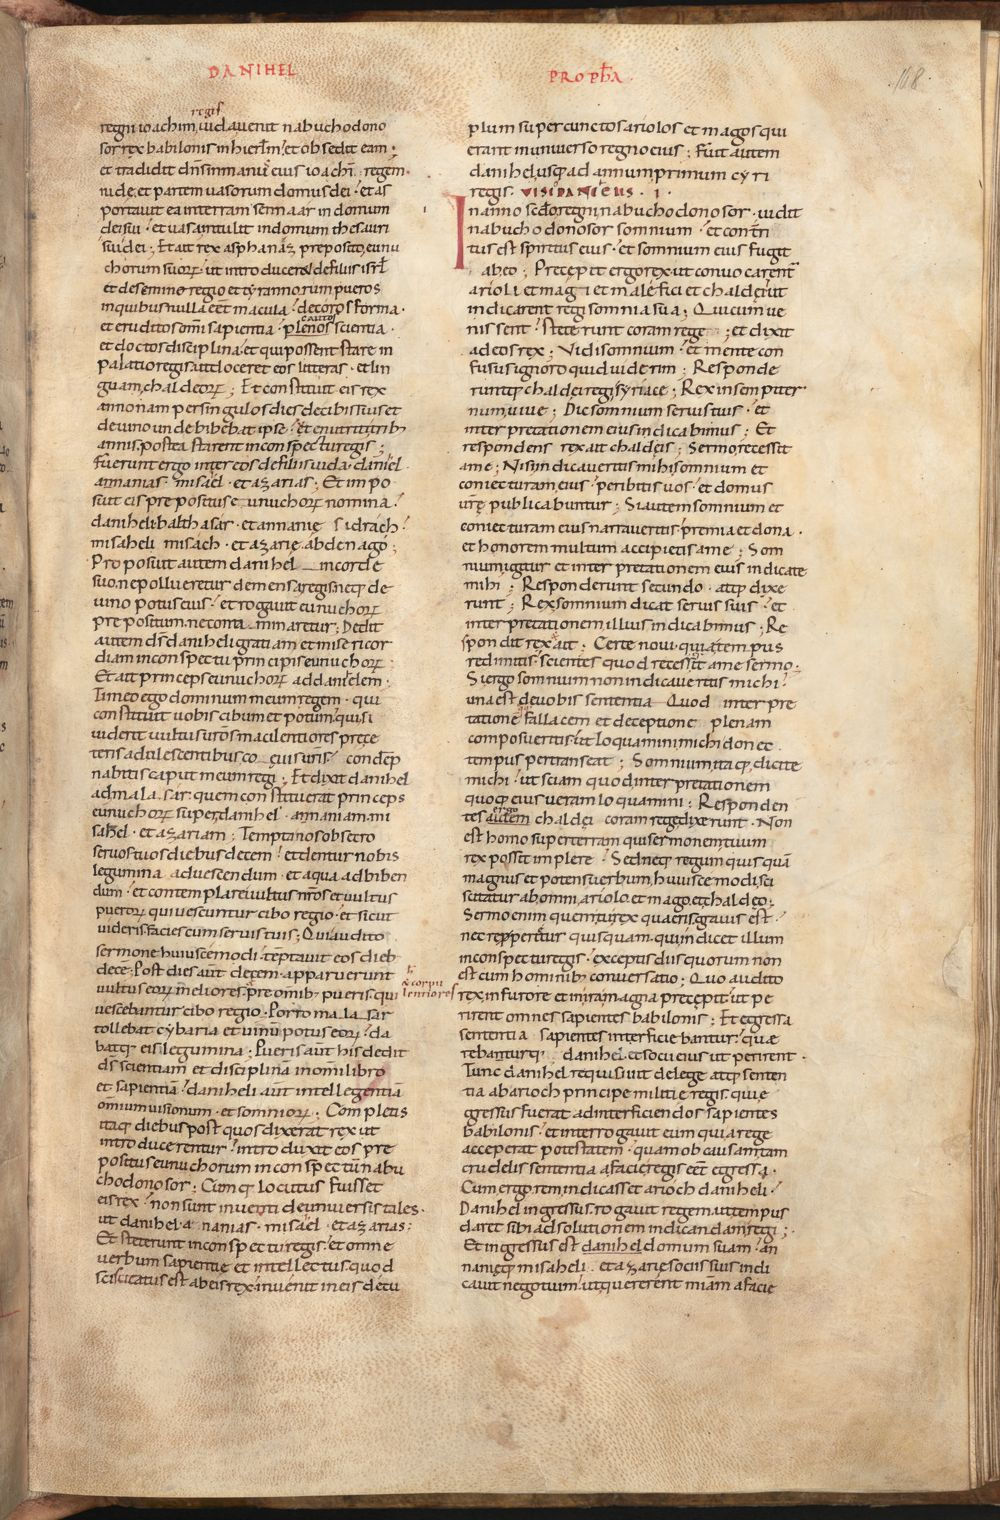 DANIHEL
PROPHA
168
regis
regni ioachim iuda uenit nabuchodono
sor rex babilonis in hierlm et obsedit eam
et tradidit dns in manu eius ioachi regem
iude et partem uasorum domus dei et as
portauit ea in terram sennaar in domum
dei sui et uasa intulit in domum thesauri
sui dei Et ait rex asphanaz preposito eunu
chorum suorum ut introduceret de filiis isrl
et de semine regio et tyrannorum pueros
in quibus nulla eet macula decoros forma
cautos
et eruditos omi sapientia plenos scientia
et doctos disciplina et qui possent stare in
palatio regis ut doceret eos litteras et lin
guam chaldeorum Et constituit eis rex
annonam per singulos dies de cibis suis et
de uino unde bibebat ipse et enutriti trib
annis postea starent in conspectu regis
fuerunt ergo inter eos de filiis iuda daniel
annanias misael et azarias Et impo
suit eis prepositus eunuchorum nomina
daniheli balthasar et annanie sidrach
misaheli misach et azarie abdenago
Proposuit autem danihel in corde
suo ne pollueretur de mensa regis neque de
uino potus eius et rogauit eunuchorum
prepositum ne contaminaretur Dedit
autem ds daniheli gratiam et misericor
diam in conspectu principis eunuchorum
Et ait princeps eunuchorum ad danielem
Timeo ego dominum meum regem qui
constituit uobis cibum et potum qui si
uiderit uultus uros macilentiores prece
teris adulescentibus coeuis uris condep
nabitis caput meum regi Et dixit danihel
ad malasar quem constituerat princeps
eunuchorum super danihel annaniam mi
sahel et azariam Tempta nos obsecro
seruos tuos diebus decem et dentur nobis
legumina ad uescendum et aqua ad biben
dum et contemplare uultus nros et uultus
puerorum qui uescuntur cibo regio et sicut
uideris facies cum seruis tuis Qui audito
sermone huiuscemodi temptauit eos dieb
dece Post dies aut decem apparuerunt
uultus eorum meliores pre omnib pueris qui
et corpu
lentiores
uescebantur cibo regio Porro malasar
tollebat cybaria et uinu potus eorum da
batque eis legumina Pueris aut his dedit
ds scientiam et disciplina in omi libro
et sapientia daniheli aut intellegentia
omnium uisionum et somniorum Completis
itaque diebus post quos dixerat rex ut
introducerentur introduxit eos pre
positus eunuchorum in conspectu nabu
chodonosor Cumque locutus fuisset
eis rex non sunt inuenti de uniuersis tales
ut danihel ananias misael et azarias
Et steterunt in conspectu regis et omne
uerbum sapientie et intellectus quod
sciscitatus est ab eis rex inuenit in eis decu
plum super cunctos ariolos et magos qui
erant in uniuerso regno eius Fuit autem
danihel usque ad annum primum cyri
regis VISI DANIEUS I
In anno sedo regni nabuchodonosor uidit
nabuchodonosor somnium et conteri
tus est spiritus eius et somnium eius fugit
ab eo Precepit ergo rex ut conuocarent
arioli et magi et malefici et chaldei ut
indicarent regi somnia sua Qui cum ue
nissent steterunt coram rege et dixit
ad eos rex Vidi somnium et mente con
fusus ignoro quid uiderim Responde
runtque chaldei regi syriace Rex in sempiter
num uiue Dic somnium seruis tuis et
interpretationem eius indicabimus Et
respondens rex ait chaldeis Sermo recessit
a me Nisi indicaueritis mihi somnium et
coniecturam eius peribitis uos et domus
ure publicabuntur Si autem somnium et
coniecturam eius narraueritis premia et dona
et honorem multum accipietis a me Som
nium igitur et interpretationem eius indicate
mihi Responderunt secundo atque dixe
runt Rex somnium dicat seruis suis et
interpretationem illius indicabimus Re
spondit rex ait Certe noui quia tempus
redimitis scientes quod recesserit a me sermo
Si ergo somnium non indicaueritis michi
una est de uobis sententia Quod interpre
tatione fallacem et deceptione plenam
composueritis ut loquamini michi donec
tempus pertranseat Somnium itaque dicite
michi ut sciam quod interpretationem
quoque eius ueram loquamini Responden
ergo
tes autem chaldei coram rege dixerunt Non
est homo super terram qui sermonem tuum
rex possit implere Sed neque regum quisqua
magnus et potens uerbum huiuscemodi sci
scitatur ab omni ariolo et mago et chaldeo
Sermo enim quem tu rex quaeris grauis est
nec reperietur quisquam qui indicet illum
in conspectu regis exceptis diis quorum non
est cum hominib conuersatio Quo audito
rex in furore et in ira magna precepit ut pe
rirent omnes sapientes babilonis Et egressa
sententia sapientes interficiebantur quae
rebanturque danihel et socii eius ut perirent
Tunc danihel requisiuit de lege atque senten
tia ab arioch principe militie regis qui e
gressus fuerat ad interficiendos sapientes
babilonis et interrogauit eum qui a rege
acceperat potestatem quam ob causam tam
crudelis sententia a facie regis eet egressa
Cum ergo rem indicasset arioch daniheli
Danihel ingressus rogauit regem ut tempus
daret sibi ad solutionem indicandam regi
Et ingressus est danihel domum suam an
nanieque misaheli et azarie sociis suis indi
cauit negotium ut quererent miam a facie